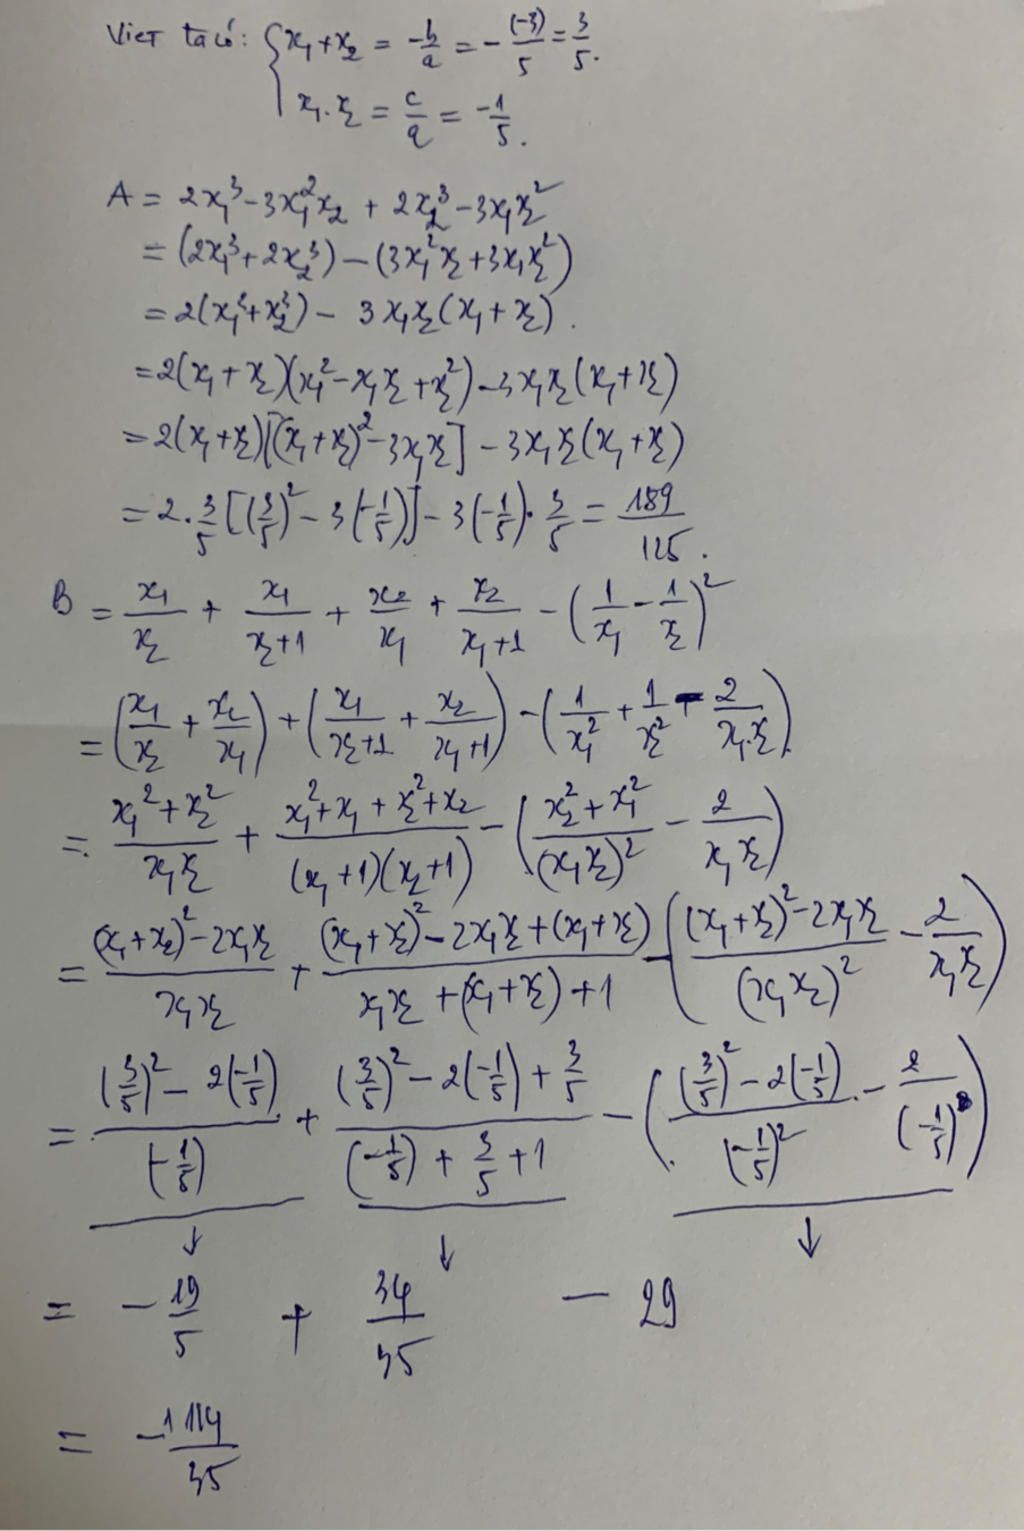 Viet ta có: { x₁ + x₂ = -b/a = -(-3)/5 = 3/5.
x₁.x₂ = c/a = -1/5.
A = 2x₁³ - 3x₁²x₂ + 2x₂³ - 3x₁x₂²
= (2x₁³ + 2x₂³) - (3x₁²x₂ + 3x₁x₂²)
= 2(x₁³ + x₂³) - 3x₁x₂(x₁ + x₂).
= 2(x₁ + x₂)(x₁² - x₁x₂ + x₂²) - 3x₁x₂(x₁ + x₂)
= 2(x₁ + x₂)[(x₁ + x₂)² - 3x₁x₂] - 3x₁x₂(x₁ + x₂)
= 2.3/5[(3/5)² - 3(-1/5)] - 3(-1/5).3/5 = 189/125.
B = x₁/x₂ + x₁/(x₂+1) + x₂/x₁ + x₂/(x₁+1) - (1/x₁ - 1/x₂)²
= (x₁/x₂ + x₂/x₁) + (x₁/(x₂+1) + x₂/(x₁+1)) - (1/x₁² + 1/x₂² - 2/(x₁.x₂))
= (x₁² + x₂²)/(x₁x₂) + (x₁² + x₁ + x₂² + x₂)/((x₁+1)(x₂+1)) - ((x₂² + x₁²)/(x₁x₂)² - 2/(x₁x₂))
= ((x₁+x₂)² - 2x₁x₂)/(x₁x₂) + ((x₁+x₂)² - 2x₁x₂ + (x₁+x₂))/(x₁x₂ + (x₁+x₂) + 1) - (((x₁+x₂)² - 2x₁x₂)/(x₁x₂)² - 2/(x₁x₂))
= ((3/5)² - 2(-1/5))/(-1/5) + ((3/5)² - 2(-1/5) + 3/5)/((-1/5) + 3/5 + 1) - (((3/5)² - 2(-1/5))/(-1/5)² - 2/(-1/5))
↓ ↓ ↓
= -19/5 + 34/35 - 29
= -1114/35